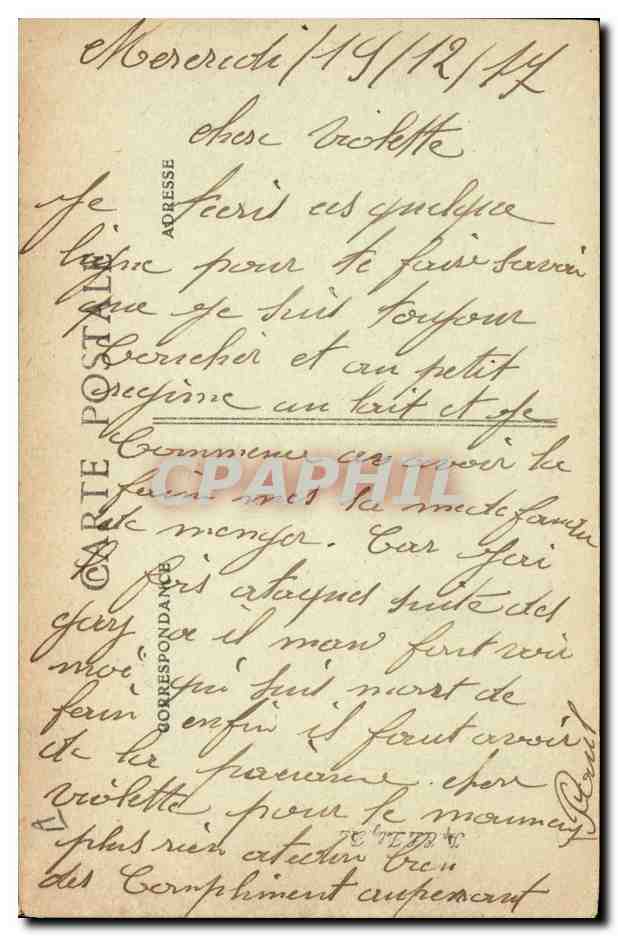 Mercredi/19/12/17
cher violette
Je t'ecris ces quelque
ligne pour te faire savoir
que je suis toujour
coucher et au petit
regime au lait et je
commence a avoir la
faim mes la
de manger. Car j'ai
fois ataques suite des
gaz a il man font voir
moi qui suis mort de
faim enfin il faut avoir
de la paciance. cher
violette pour le moment
plus rien bien
des Compliment
Paul
CARTE POSTALE
ADRESSE
CORRESPONDANCE
CPAPHIL